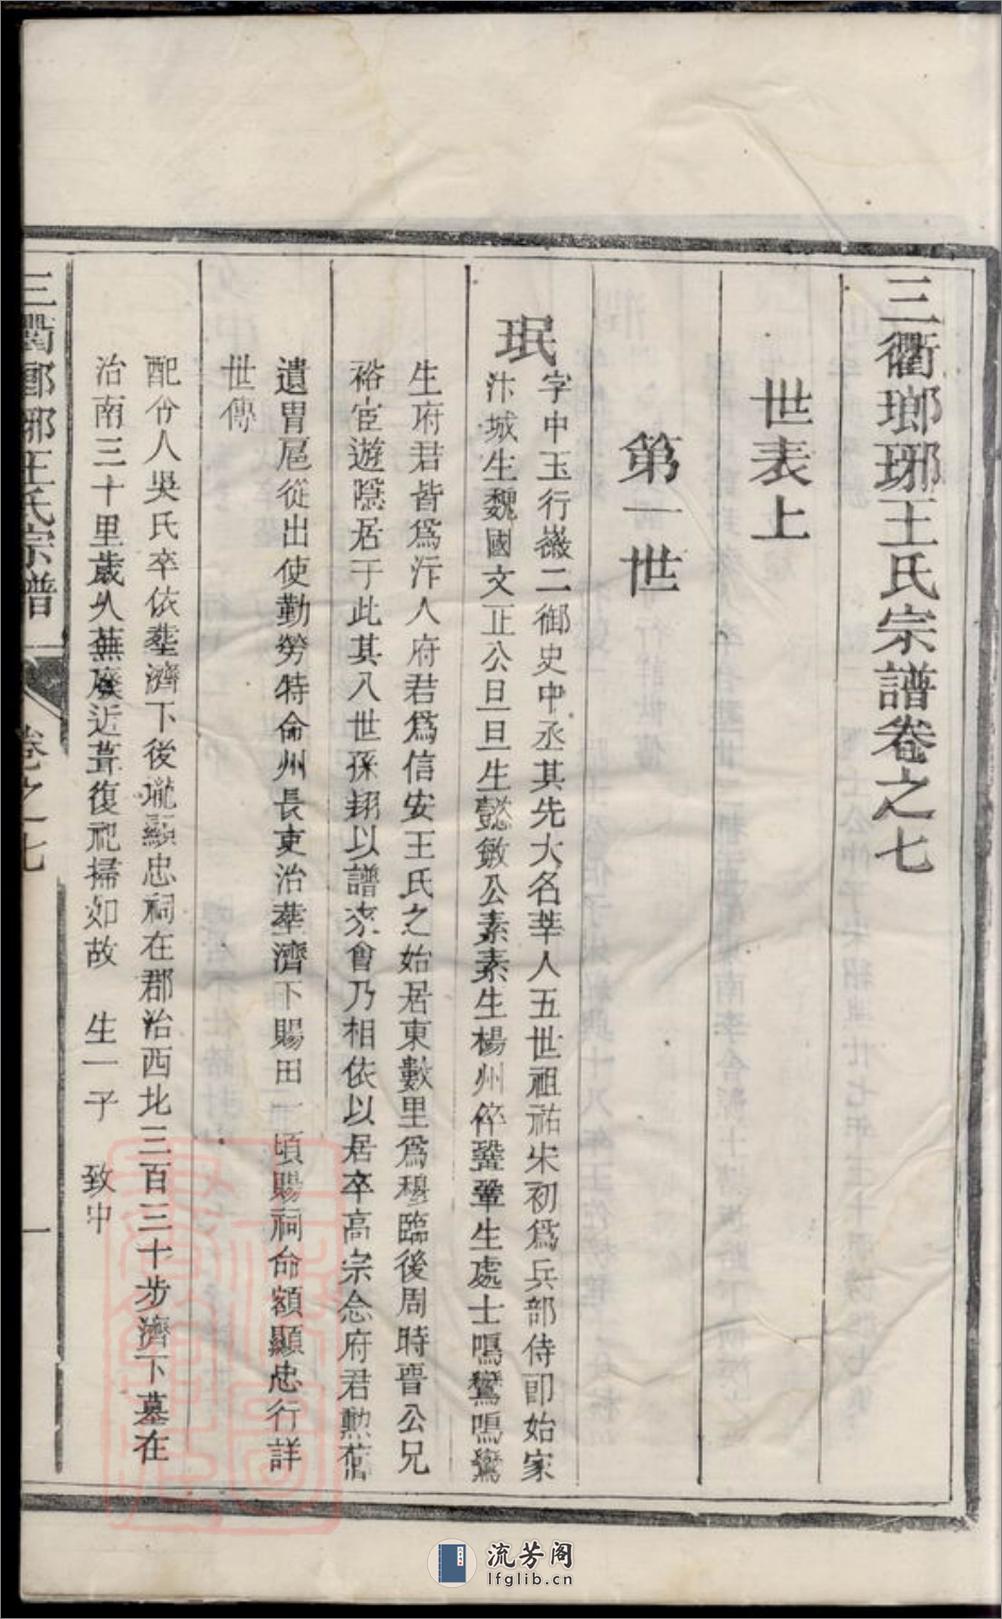 三衢瑯琊王氏宗譜卷之七
世表上
第一世
珉
字中玉行嶶二御史中丞其先大名莘人五世祖祐宋初爲兵部侍郎始家
汴城生魏國文正公旦旦生懿敏公素素生楊州倅鞏鞏生處士鳴鸞鳴鸞
生府君皆爲汴人府君爲信安王氏之始居東數里爲穆臨後周時晉公兄
裕宦遊隱居于此其八世孫翃以譜來會乃相依以居卒高宗念府君勲舊
遺胄扈從出使勤勞特命州長吏治塟濟下賜田一頃賜祠命額顯忠行詳
世傳
配兮人吳氏卒依塟濟下後瓏顯忠祠在郡治西北三百三十步濟下墓在
治南三十里歲久蕪廢近葺復祀掃如故　生一子　致中
三衢瑯琊王氏宗譜
卷之七
一
流芳阁
lfglib.cn